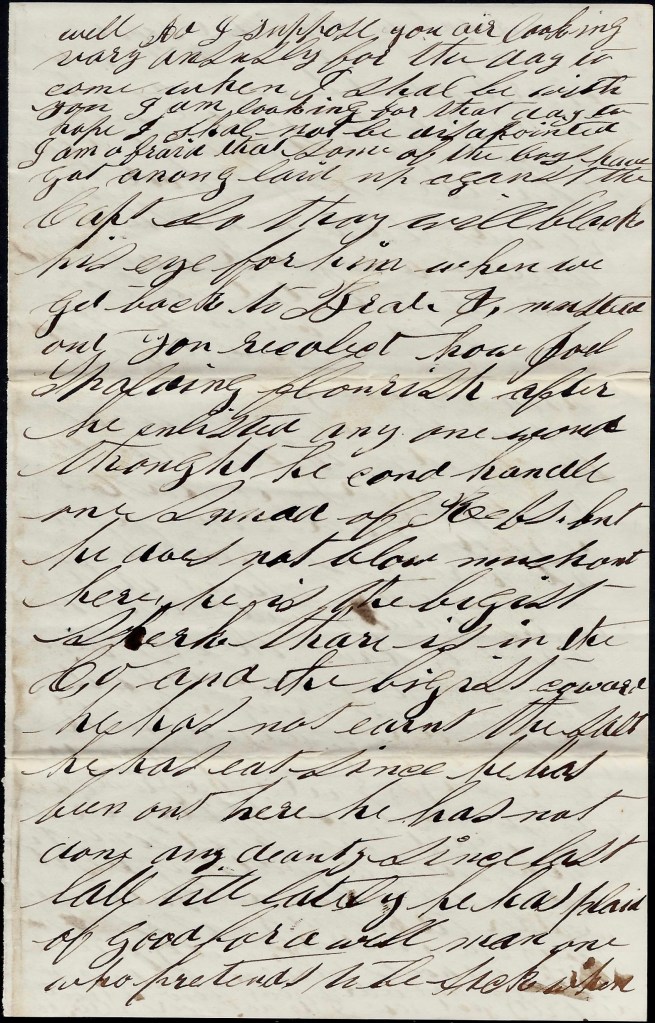 well so I suppose you air looking
vary anxusly for the day to
come when I shal be with
you I am looking for that day to
hope I shal not be disapointed
I am afraid that some of the boys have
got a laid up against the
Capt so thay will black
his eye for him when we
get back to & musterd
out you recolect how Joel
Spalding flourish after
he enlisted any one woud
thought he coud handle
one Squad of Rebs. but
he does not blow much out
here, he is the bigist
Sherk thare is in the
Co, and the bigist coward
he has not earnt the salt
he has eat since he has
been out here he has not
done any deauty since last
fall till lately he has plaid
of good for a well man one
who pretends to be sick when